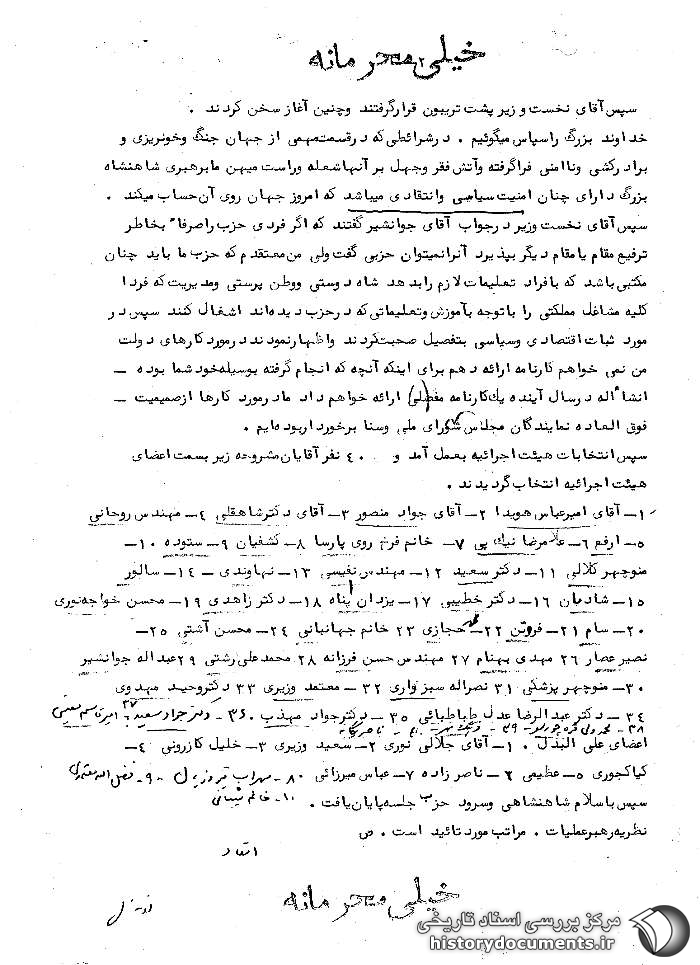 خیلی محرمانه
سپس آقای نخست وزیر پشت تریبون قرار گرفتند وچنین آغاز سخن کردند .
خداوند بزرگ را سپاس میگوئیم . در شرائطی که در قسمت مهمی از جهان جنگ وخونریزی و
برادرکشی وناامنی فراگرفته وآتش فقر وجهل بر آنها شعله وراست میهن ما برهبری شاهنشاه
بزرگ دارای چنان امنیت سیاسی وانتقادی میباشد که امروز جهان روی آن حساب میکند .
سپس آقای نخست وزیر در جواب آقای جوانشیر گفتند که اگر فردی حزب را صرفا" بخاطر
ترفیع مقام یا مقام دیگر بپذیرد آنرا نمیتوان حزبی گفت ولی من معتقدم که حزب ما باید چنان
مکتبی باشد که بافراد تعلیمات لازم را بدهد شاه دوستی ووطن پرستی ومدیریت که فردا
کلیه مشاغل مملکتی را با توجه بآموزش وتعلیماتی که در حزب دیده‌اند اشغال کنند سپس در
مورد ثبات اقتصادی وسیاسی بتفصیل صحبت کردند واظهار نمودند در مورد کارهای دولت
من نمی خواهم کارنامه ارائه دهم برای اینکه آنچه که انجام گرفته بوسیله خود شما بوده –
انشا"اله در سال آینده یك کارنامه مفصلی ارائه خواهم داد ما در مورد کارها از صمیمیت –
فوق العاده نمایندگان مجلس شورای ملی وسنا برخوردار بوده‌ایم .
سپس انتخابات هیئت اجرائیه بعمل آمد و ۴۰ نفر آقایان مشروحه زیر بسمت اعضای
هیئت اجرائیه انتخاب گردیدند .
۱– آقای امیرعباس هویدا ۲– آقای جواد منصور ۳– آقای دکتر شاهقلی ۴– مهندس روحانی
۵– ارفع ۶– غلامرضا نیك پی ۷– خانم فرخ روی پارسا ۸– کشفیان ۹– ستوده ۱۰–
منوچهر کلالی ۱۱– دکتر سعید ۱۲– مهندس نفیسی ۱۳– نهاوندی – ۱۴– سالور
۱۵– شادمان ۱۶– دکتر خطیبی ۱۷– یزدان پناه ۱۸– دکتر زاهدی ۱۹– محسن خواجه نوری
۲۰– سام ۲۱– فروتن ۲۲– حجازی ۲۳ خانم جهانبانی ۲۴– محسن آشتی ۲۵–
نصیر عصار ۲۶ مهدی بهنام ۲۷ مهندس حسن فرزانه ۲۸ محمد علی رشتی ۲۹ عبداله جوانشیر
۳۰– منوچهر پزشکی ۳۱ نصراله سبزواری ۳۲– معتمد وزیری ۳۳ دکتر وحید مهدوی
۳۴– دکتر عبدالرضا عدل طباطبائی ۳۵– دکتر جواد مهذب ۳۶– دکتر جواد سعید ۳۷ امیر قاسم معینی
۳۸– ۳۹– ۴۰–
اعضای علی البدل . ۱– آقای جلالی نوری ۲– سعید وزیری ۳– خلیل کازرونی ۴–
کیاکجوری ۵– عظیمی ۶– ناصر زاده ۷– عباس میرزائی ۸– سهراب فیروزیان – ۹– فضل اله معتمدی
۱۰– خانم
سپس با سلام شاهنشاهی وسرود حزب جلسه پایان یافت .
نظریه رهبر عملیات . مراتب مورد تائید است . ص
خیلی محرمانه
مرکز بررسی اسناد تاریخی
historydocuments.ir